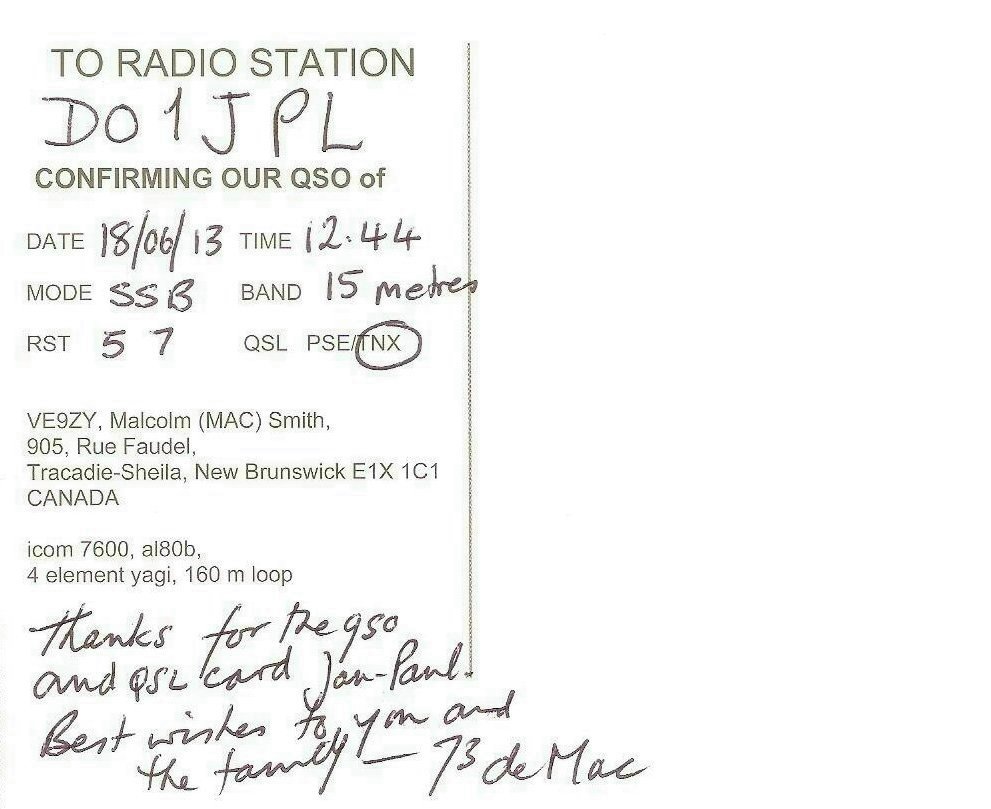 TO RADIO STATION
DO1JPL
CONFIRMING OUR QSO of
DATE 18/06/13 TIME 12.44
MODE SSB BAND 15 metres
RST 57 QSL PSE/TNX
VE9ZY, Malcolm (MAC) Smith,
905, Rue Faudel,
Tracadie-Sheila, New Brunswick E1X 1C1
CANADA
icom 7600, al80b,
4 element yagi, 160 m loop
Thanks for the qso
and QSL card Jan-Paul.
Best wishes to you and
the family — 73 de Mac